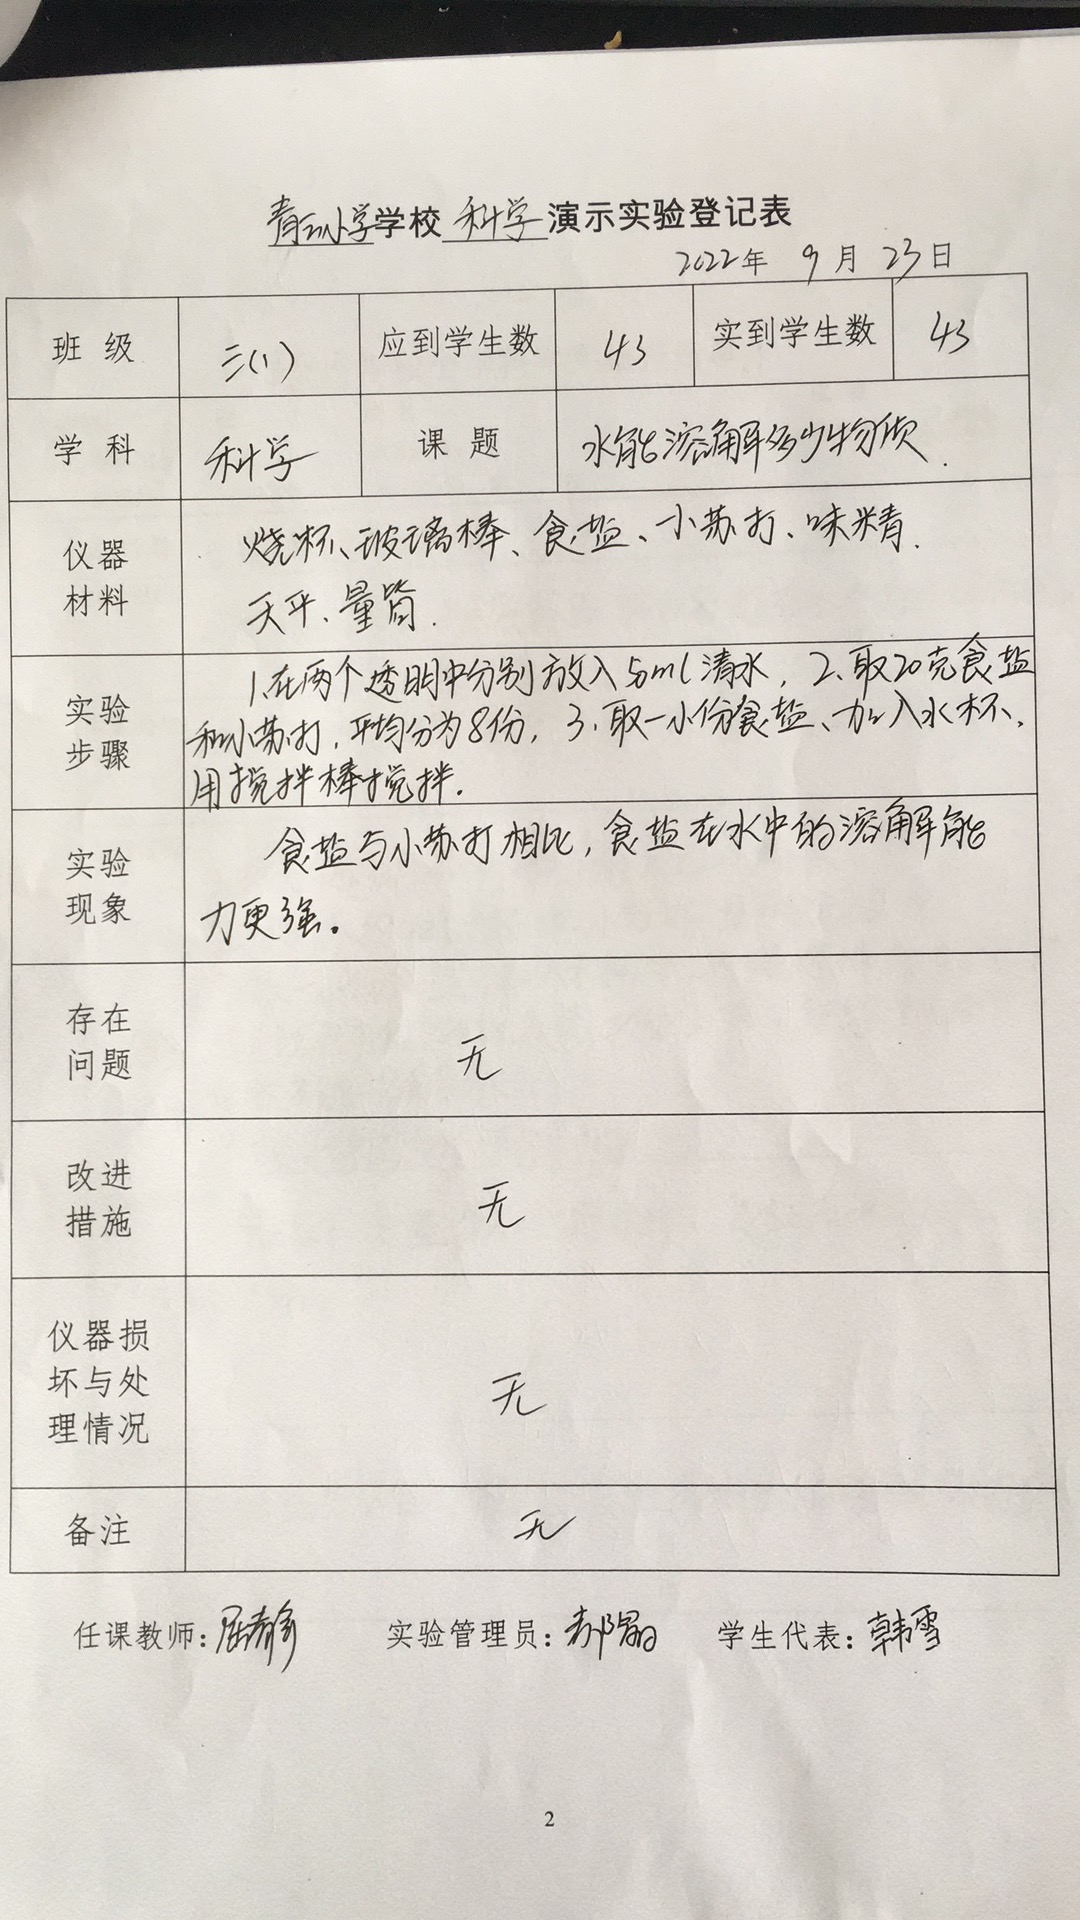 小学学校 科学 演示实验登记表
2022年 9月 23日
班级 三(1) 应到学生数 43 实到学生数 43
学科 科学 课题 水能溶解多少物质.
仪器
材料
烧杯、玻璃棒、食盐、小苏打、味精.
天平、量筒.
实验
步骤
1.在两个透明中分别放入5ml清水, 2.取20克食盐
和小苏打,平均分为8份, 3.取一小份食盐、加入水杯,
用搅拌棒搅拌.
实验
现象
食盐与小苏打相比,食盐在水中的溶解能
力更强。
存在
问题
无
改进
措施
无
仪器损
坏与处
理情况
无
备注
无
任课教师: 实验管理员: 学生代表:韩雪
2